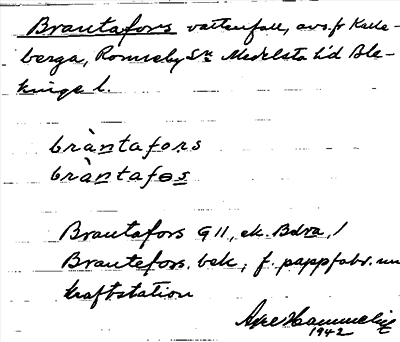 Brantafors vattenfall, avs. fr Kalle-
berga, Ronneby Sn Medelsta hd Ble-
kinge l.
bràntafors
bràntafos
Brantafors G11, ek. Bdra, 1
Brantefors. bek; f. pappfabr. nu
kraftstation
Åke Hammelin
1942